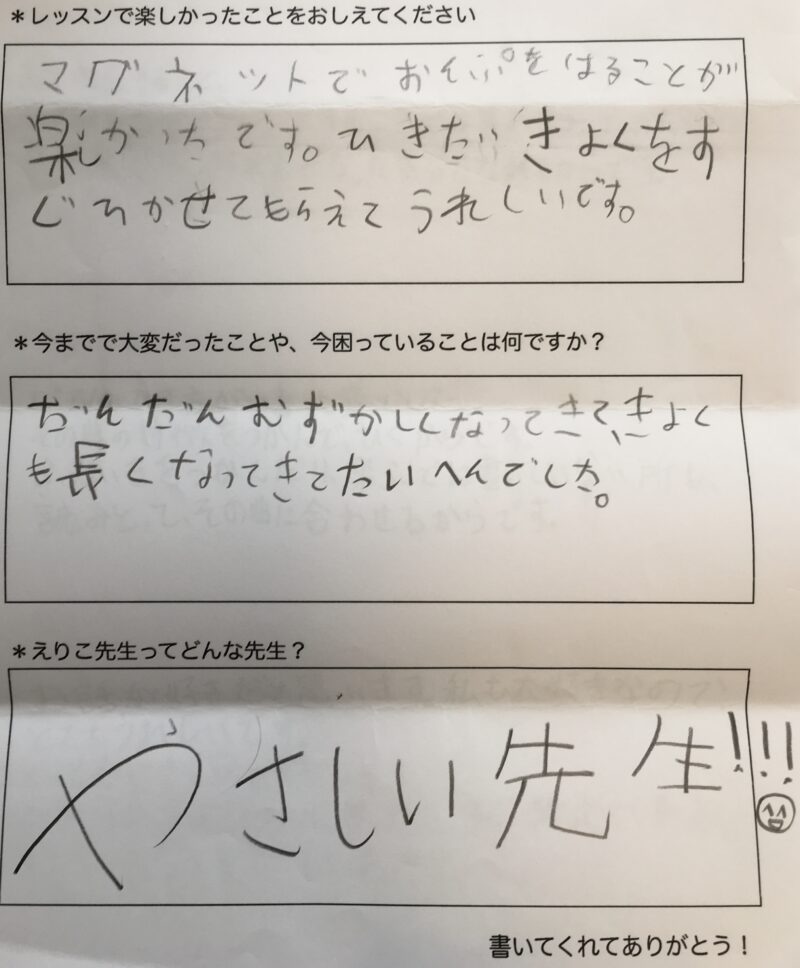 ＊レッスンで楽しかったことをおしえてください
マグネットでおんぷをはることが
楽しかったです。ひきたいきょくをす
ぐひかせてもらえてうれしいです。
＊今までで大変だったことや、今困っていることは何ですか？
だんだんむずかしくなってきて、きょく
も長くなってきてたいへんでした。
＊えりこ先生ってどんな先生？
やさしい先生!!!
書いてくれてありがとう！